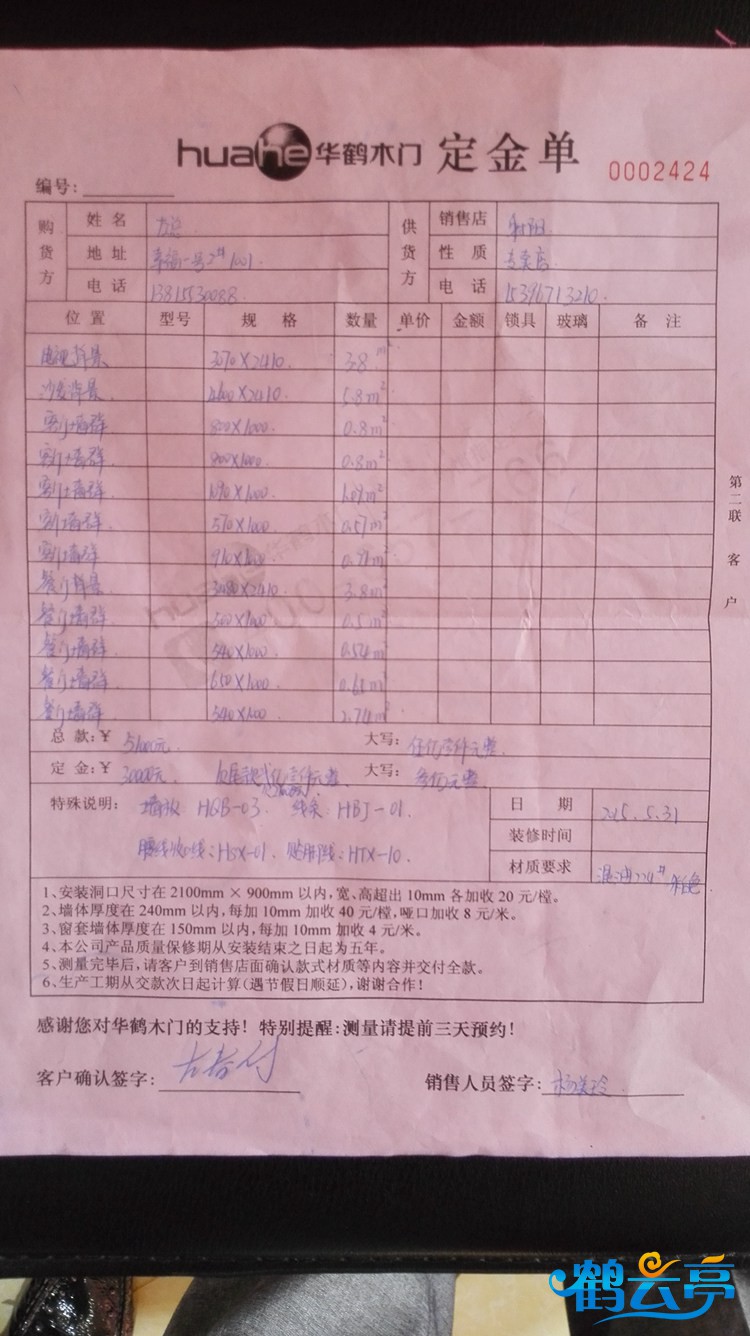 huahe 华鹤木门 定金单 0002424
编号:
购货方 姓名 方总 供货方 销售店 射阳
地址 幸福一号2#1001 性质 专卖店
电话 电话 15396713210
位置 型号 规格 数量 单价 金额 锁具 玻璃 备注
电视背景 3070×2410 3.8m²
沙发背景 2410 5.8m²
客厅墙群 800×1000 0.8m²
客厅墙群 800×1000 0.8m²
客厅墙群 1090×1000 1.09m²
客厅墙群 570×1000 0.57m²
客厅墙群 910×1000 0.91m²
餐厅背景 ×2410 3.8m²
餐厅墙群 500×1000 0.5m²
餐厅墙群 540×1000 0.54m²
餐厅墙群 650×1000 0.65m²
餐厅墙群 m²
总款:¥ 51000元 大写: 伍万壹仟元整
定金:¥ 30000元 大写: 叁万元整
特殊说明: 墙板 HQB-03. 线条:HBJ-01.
腰线 HSX-01. HTX-10.
日期 5.31
装修时间
材质要求 224#
第二联 客户
1、安装洞口尺寸在2100mm×900mm以内,宽、高超出10mm各加收20元/樘。
2、墙体厚度在240mm以内,每加10mm加收40元/樘,哑口加收8元/米。
3、窗套墙体厚度在150mm以内,每加10mm加收4元/米。
4、本公司产品质量保修期从安装结束之日起为五年。
5、测量完毕后,请客户到销售店面确认款式材质等内容并交付全款。
6、生产工期从交款次日起计算(遇节假日顺延),谢谢合作!
感谢您对华鹤木门的支持! 特别提醒:测量请提前三天预约!
客户确认签字: 销售人员签字: 杨美玲
鹤云亭